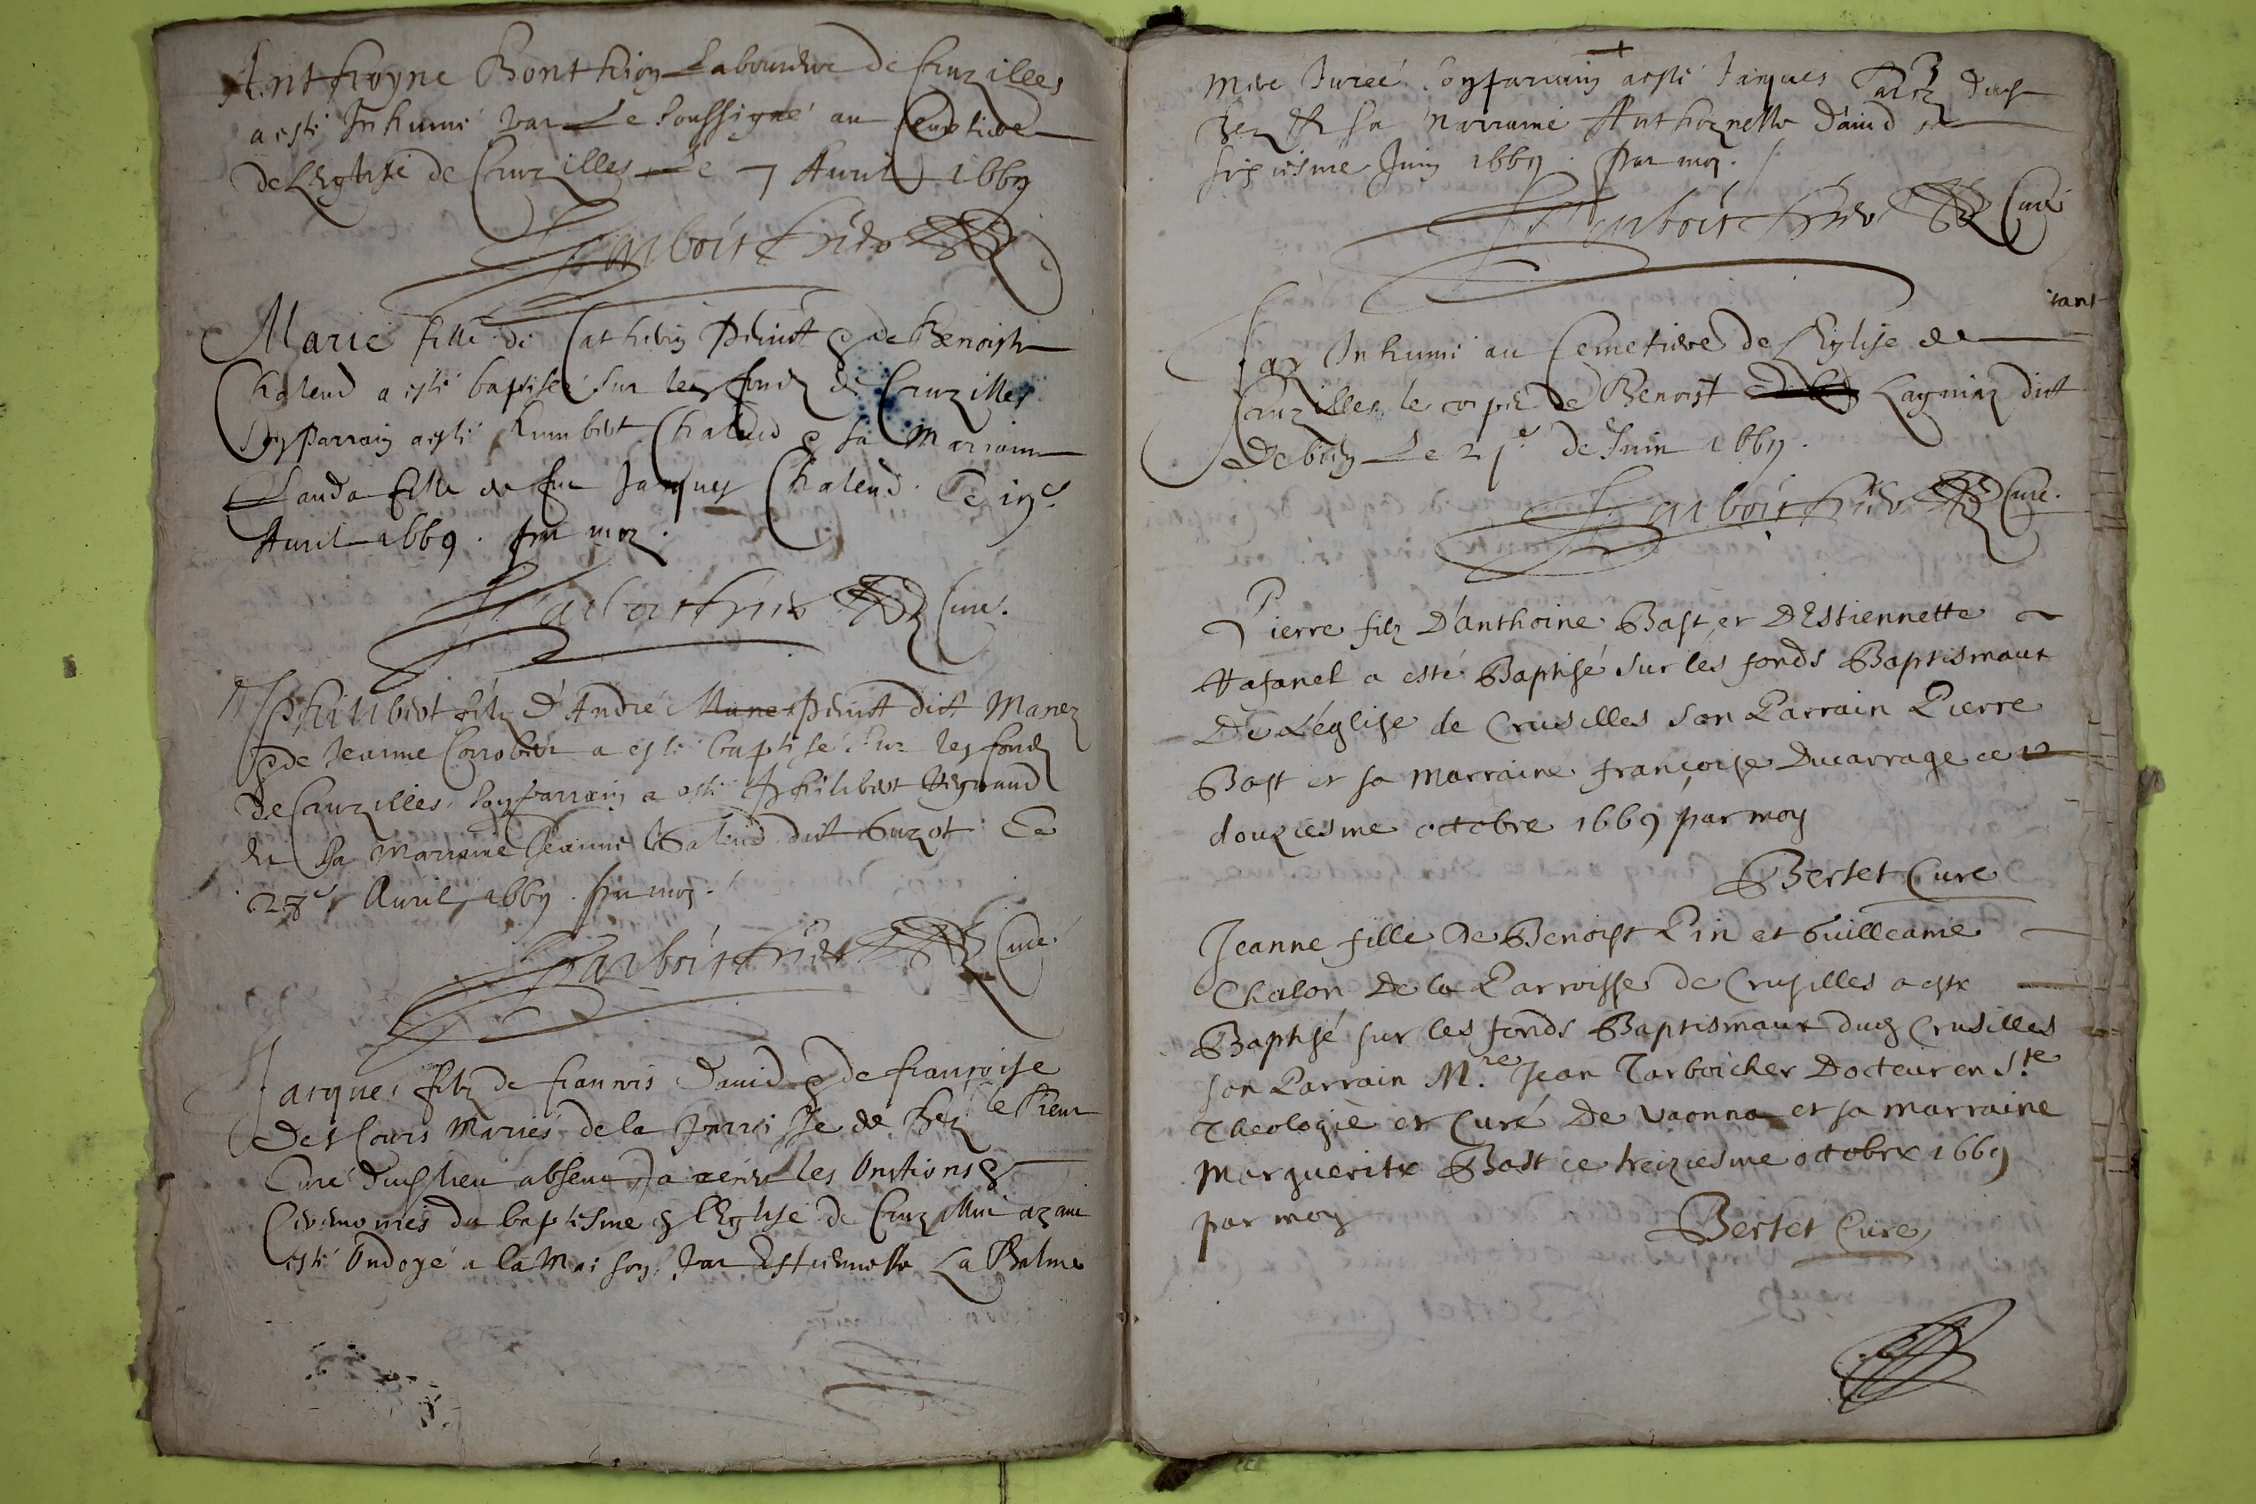 Anthoyne Bonthion Laboureur de Cruzilles
a esté Inhumé par Le soussigné au Cemetiere
de LEglise de Cruzilles Le 7 Auril 1669
Tarboicthier
Marie fille de Catherin Peruit & de Benoiste
Chaleud a esté baptisee sur les fondz de Cruzilles
son parrain a esté Humbert Chaleud & sa Marraine
Clauda fille de feu Jaques Chaleud. Ce
Auril 1669. par moy.
Tarboicthier Curé.
Philibert filz d'André Peruit dict Manez
& de Jeanne a esté baptisé sur les fondz
de Cruzilles, son parrain a esté Philibert
et sa Marraine Jeanne dict Guzot Ce
28e Auril 1669. par moy.
Tarboicthier Curé.
Jacques filz de francois Dauid & de francoise
Des Cours Mariés de la parroisse de le sieur
Curé dud lieu absent, a receu les Onctions &
Ceremonies du baptisme en l'Eglise de Cruzilles ayant
esté Ondoyé a la Maison par Estiennette La Balme
Mere Juree. Son parrain a esté Jaques dud
Et sa Marraine Anthoynette Dauid ce
sixiesme Juin 1669. par moy.
Tarboicthier Curé
Jay Inhumé au Cemetiere de LEglise de
Cruzilles le corps de Benoist Lagniaz dict
Le 21e de Juin 1669.
Tarboicthier Curé.
Pierre filz D'anthoine Bast et DEstiennette
a esté Baptisé sur les fonds Baptismaux
De L'eglise de Crusilles son Parrain Pierre
Bast et sa Marraine françoise Ducarrage ce
douziesme octobre 1669 par moy
Bertet Curé
Jeanne fille de Benoist Pin et Guilleame
Chalon De la Parroisse de Crusilles a este
Baptisé sur les fonds Baptismaux dud Crusilles
son Parrain M.re Jean Tarboicher Docteur en S.te
Theologie et Curé De Vaonna et sa marraine
Marguerite Bast ce treiziesme octobre 1669
par moy Bertet Curé